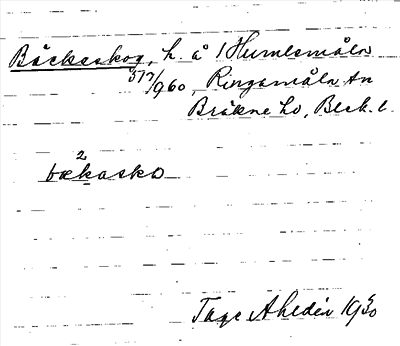 Bäckaskog, h. å 1 Humlemåla
5/7 1/960, Ringamåla sn
Bräkne hd, Blek. l.
2
bækasko
Tage Ahldén 1930